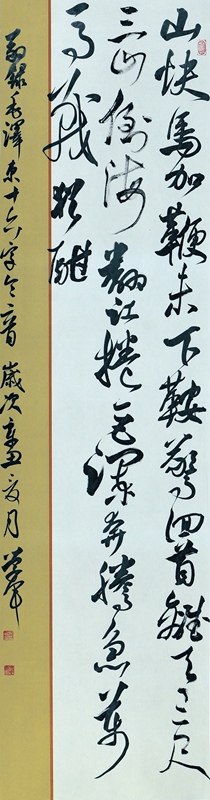 山快馬加鞭未下鞍驚回首離天三尺
三山倒海翻江捲巨瀾奔騰急萬
馬戰猶酣
錄毛澤東十六字令二首 歲次辛丑夏月